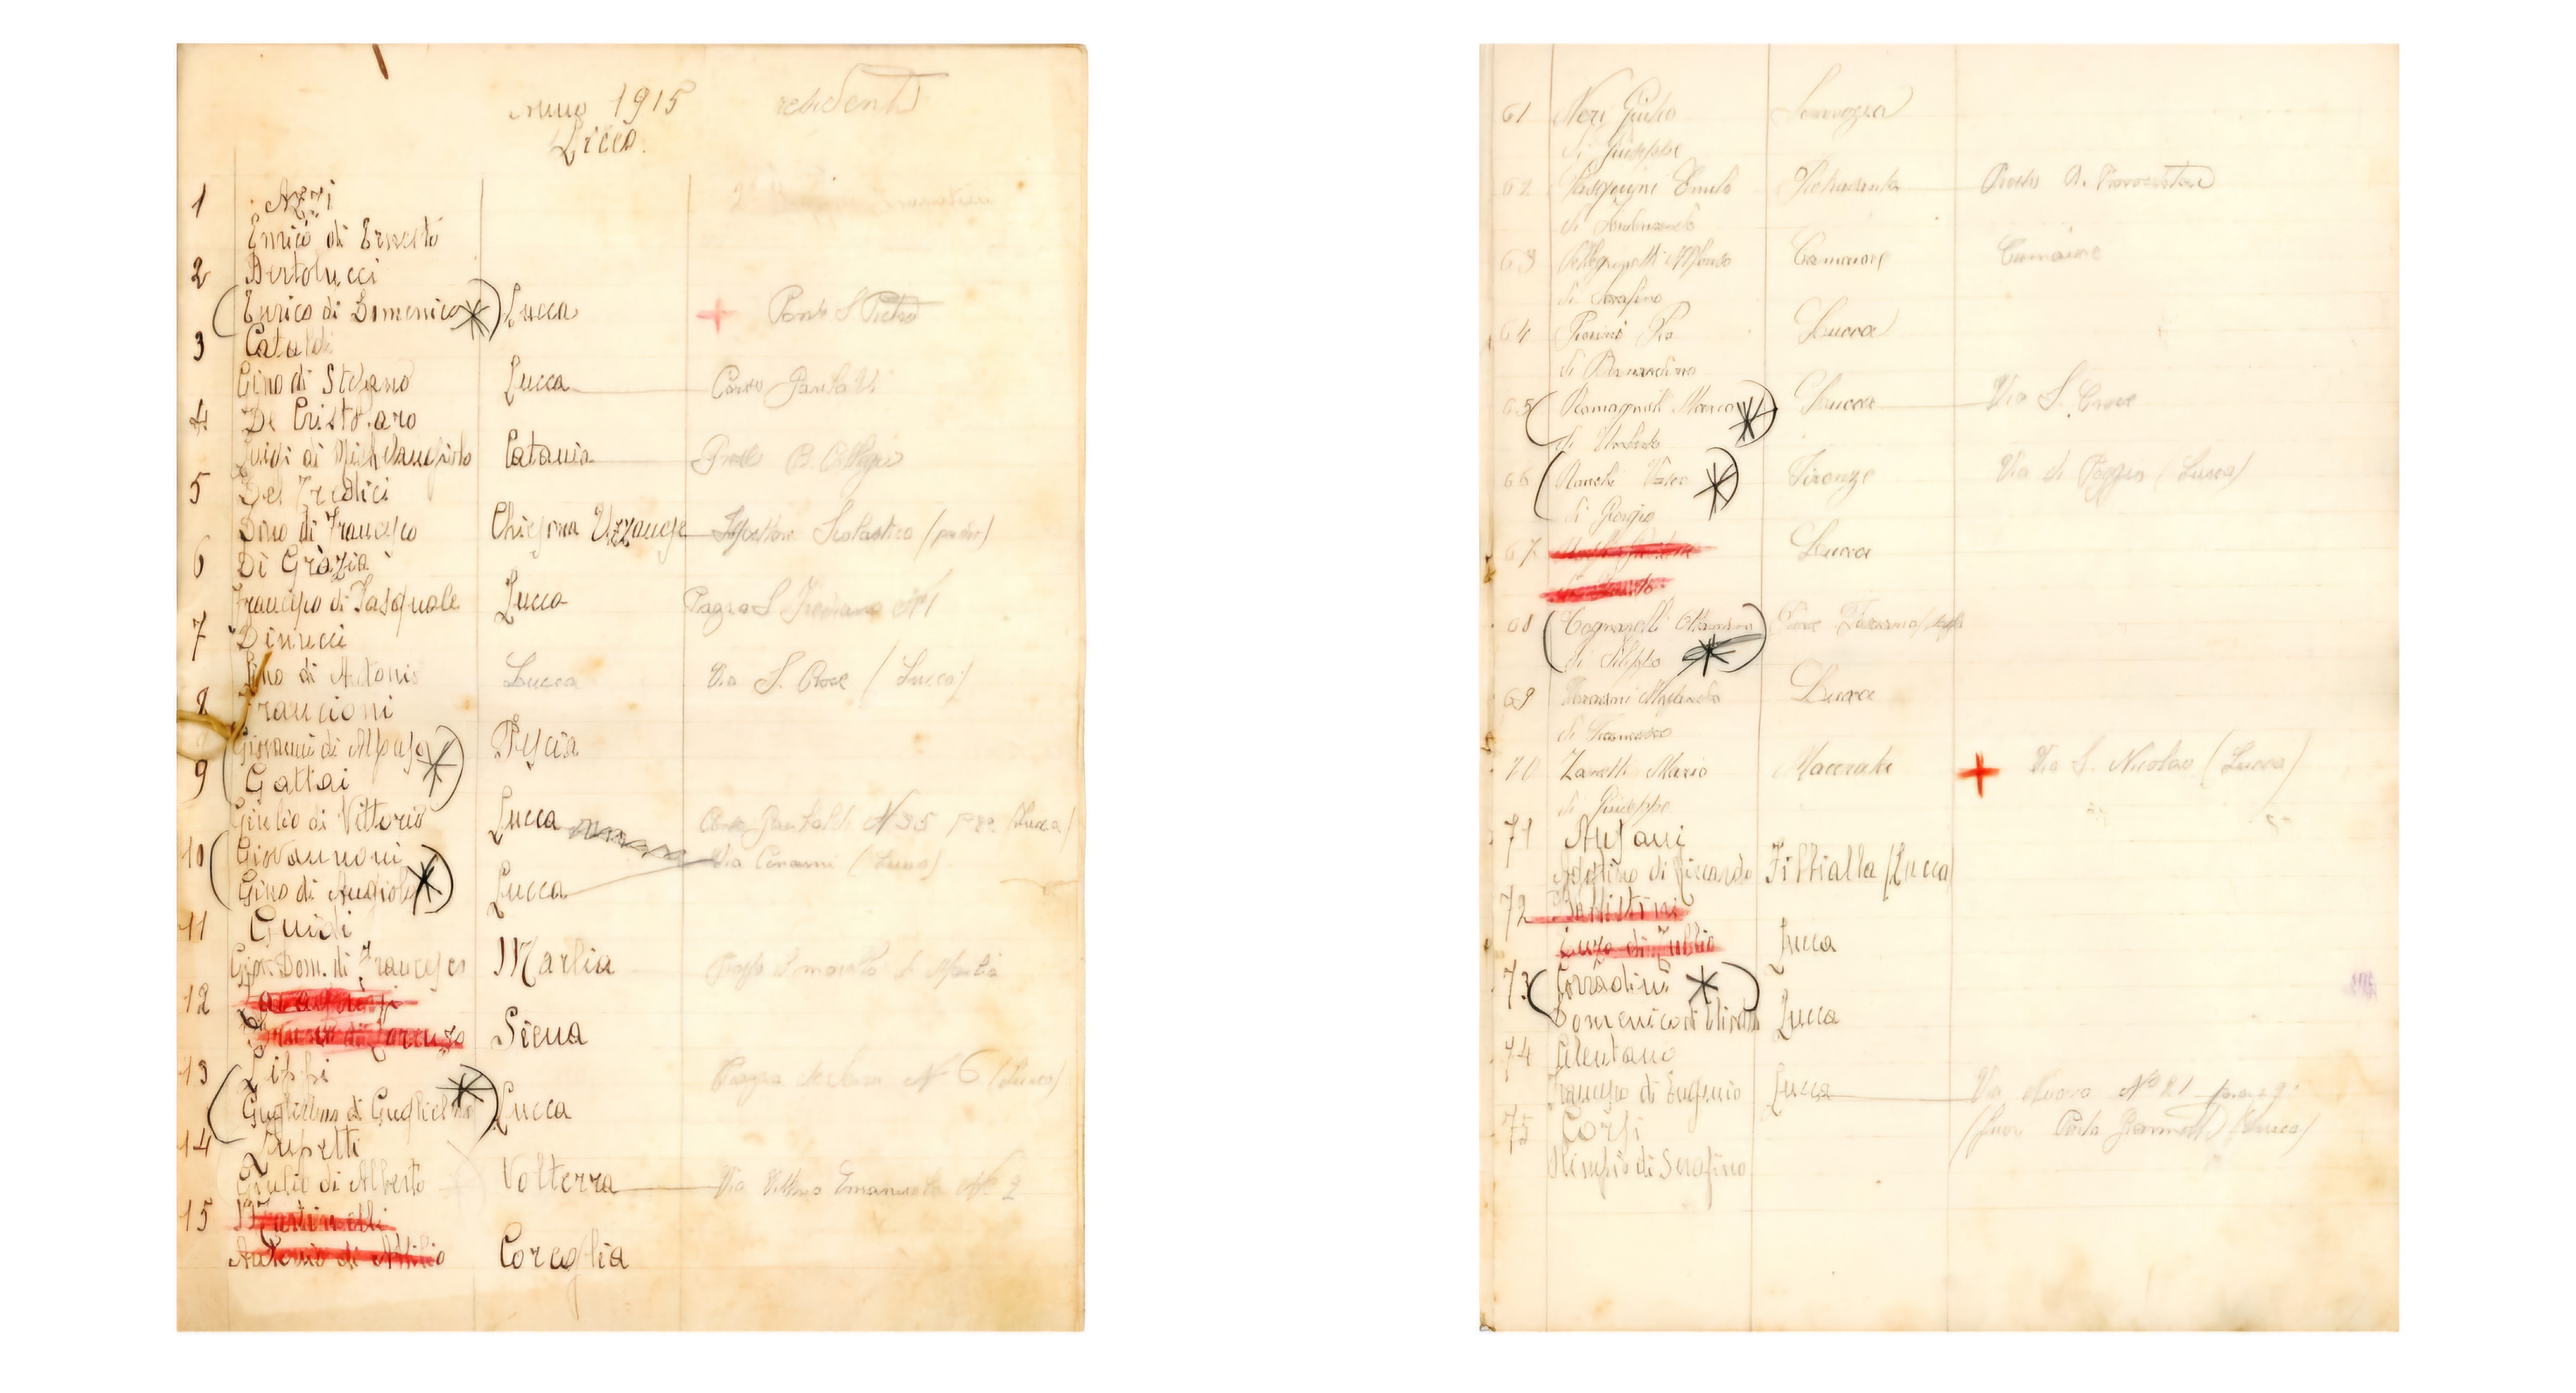 Anno 1915 residenti
Liceo.
1 Azzi
Enrico di Ernesto
2 Bertolucci
(Enrico di Domenico *) Lucca + Ponte S Pietro
3 Cataldi
Gino di Stefano Lucca Corso Garibaldi
4 De Cristofaro
Luigi di Michelangiolo Catania Presso
5 Del Tredici
Dino di Francesco Chiesina Uzzanese Scolastico (padre)
6 Di Grazia
Francesco di Pasquale Lucca S. Frediano N 1
7 Dinucci
Lino di Antonio Lucca Via S. Croce (Lucca)
8 Francioni
(Giovanni di Alfonso *) Pescia
9 Gattai
Giulio di Vittorio Lucca Corso Garibaldi N 35 (Lucca)
10 (Giovannoni Via Cenami (Lucca)
Gino di Angiolo *) Lucca
11 Guidi
Giov. Dom. di Francesco Marlia
12
di Lorenzo Siena
13 Lippi N 6 (Lucca)
(Guglielmo di Guglielmo *) Lucca
14 Lupetti
Giulio di Alberto Volterra Via Vittorio Emanuele No 2
15 Martinelli
Antonio di Attilio Coreglia
61 Neri Giulio
di Giuseppe
62 Emilio Pietrasanta
63 Alfonso Camaiore Camaiore
di Serafino
64 Pierini Pio Lucca
di Bernardino
65 (Romagnoli Marco *) Lucca Via S. Croce
di Umberto
66 (Ranchi *) Firenze Via di Poggio (Lucca)
di Giorgio
67 Lucca
68 (Tognarelli *) Pieve
di Filippo
69 Lucca
di Francesco
70 Zanetti Mario Macerata + Via S. Nicolao (Lucca)
di Giuseppe
71
Agostino di Riccardo (Lucca)
72 Ballistini
Enzo di Tullio Lucca
73 (Corradini *)
Domenico di Lucca
74 Cilentano
Francesco di Eugenio Lucca Via Nuova No 21
75 Corsi (fuori Porta (Lucca)
Olimpio di Serafino